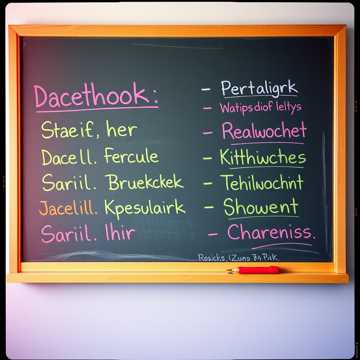 Dacethook:
Staeif, her
Dacell. Fercule
Sariil. Bruekckek
Jacelill. Kpesulairk
Sariil. Ihir
- Pertaligrk
- Watipsdiof leltys
- Realwochet
- Kitthiwches
- Tehilwochint
- Showent
- Chareniss.